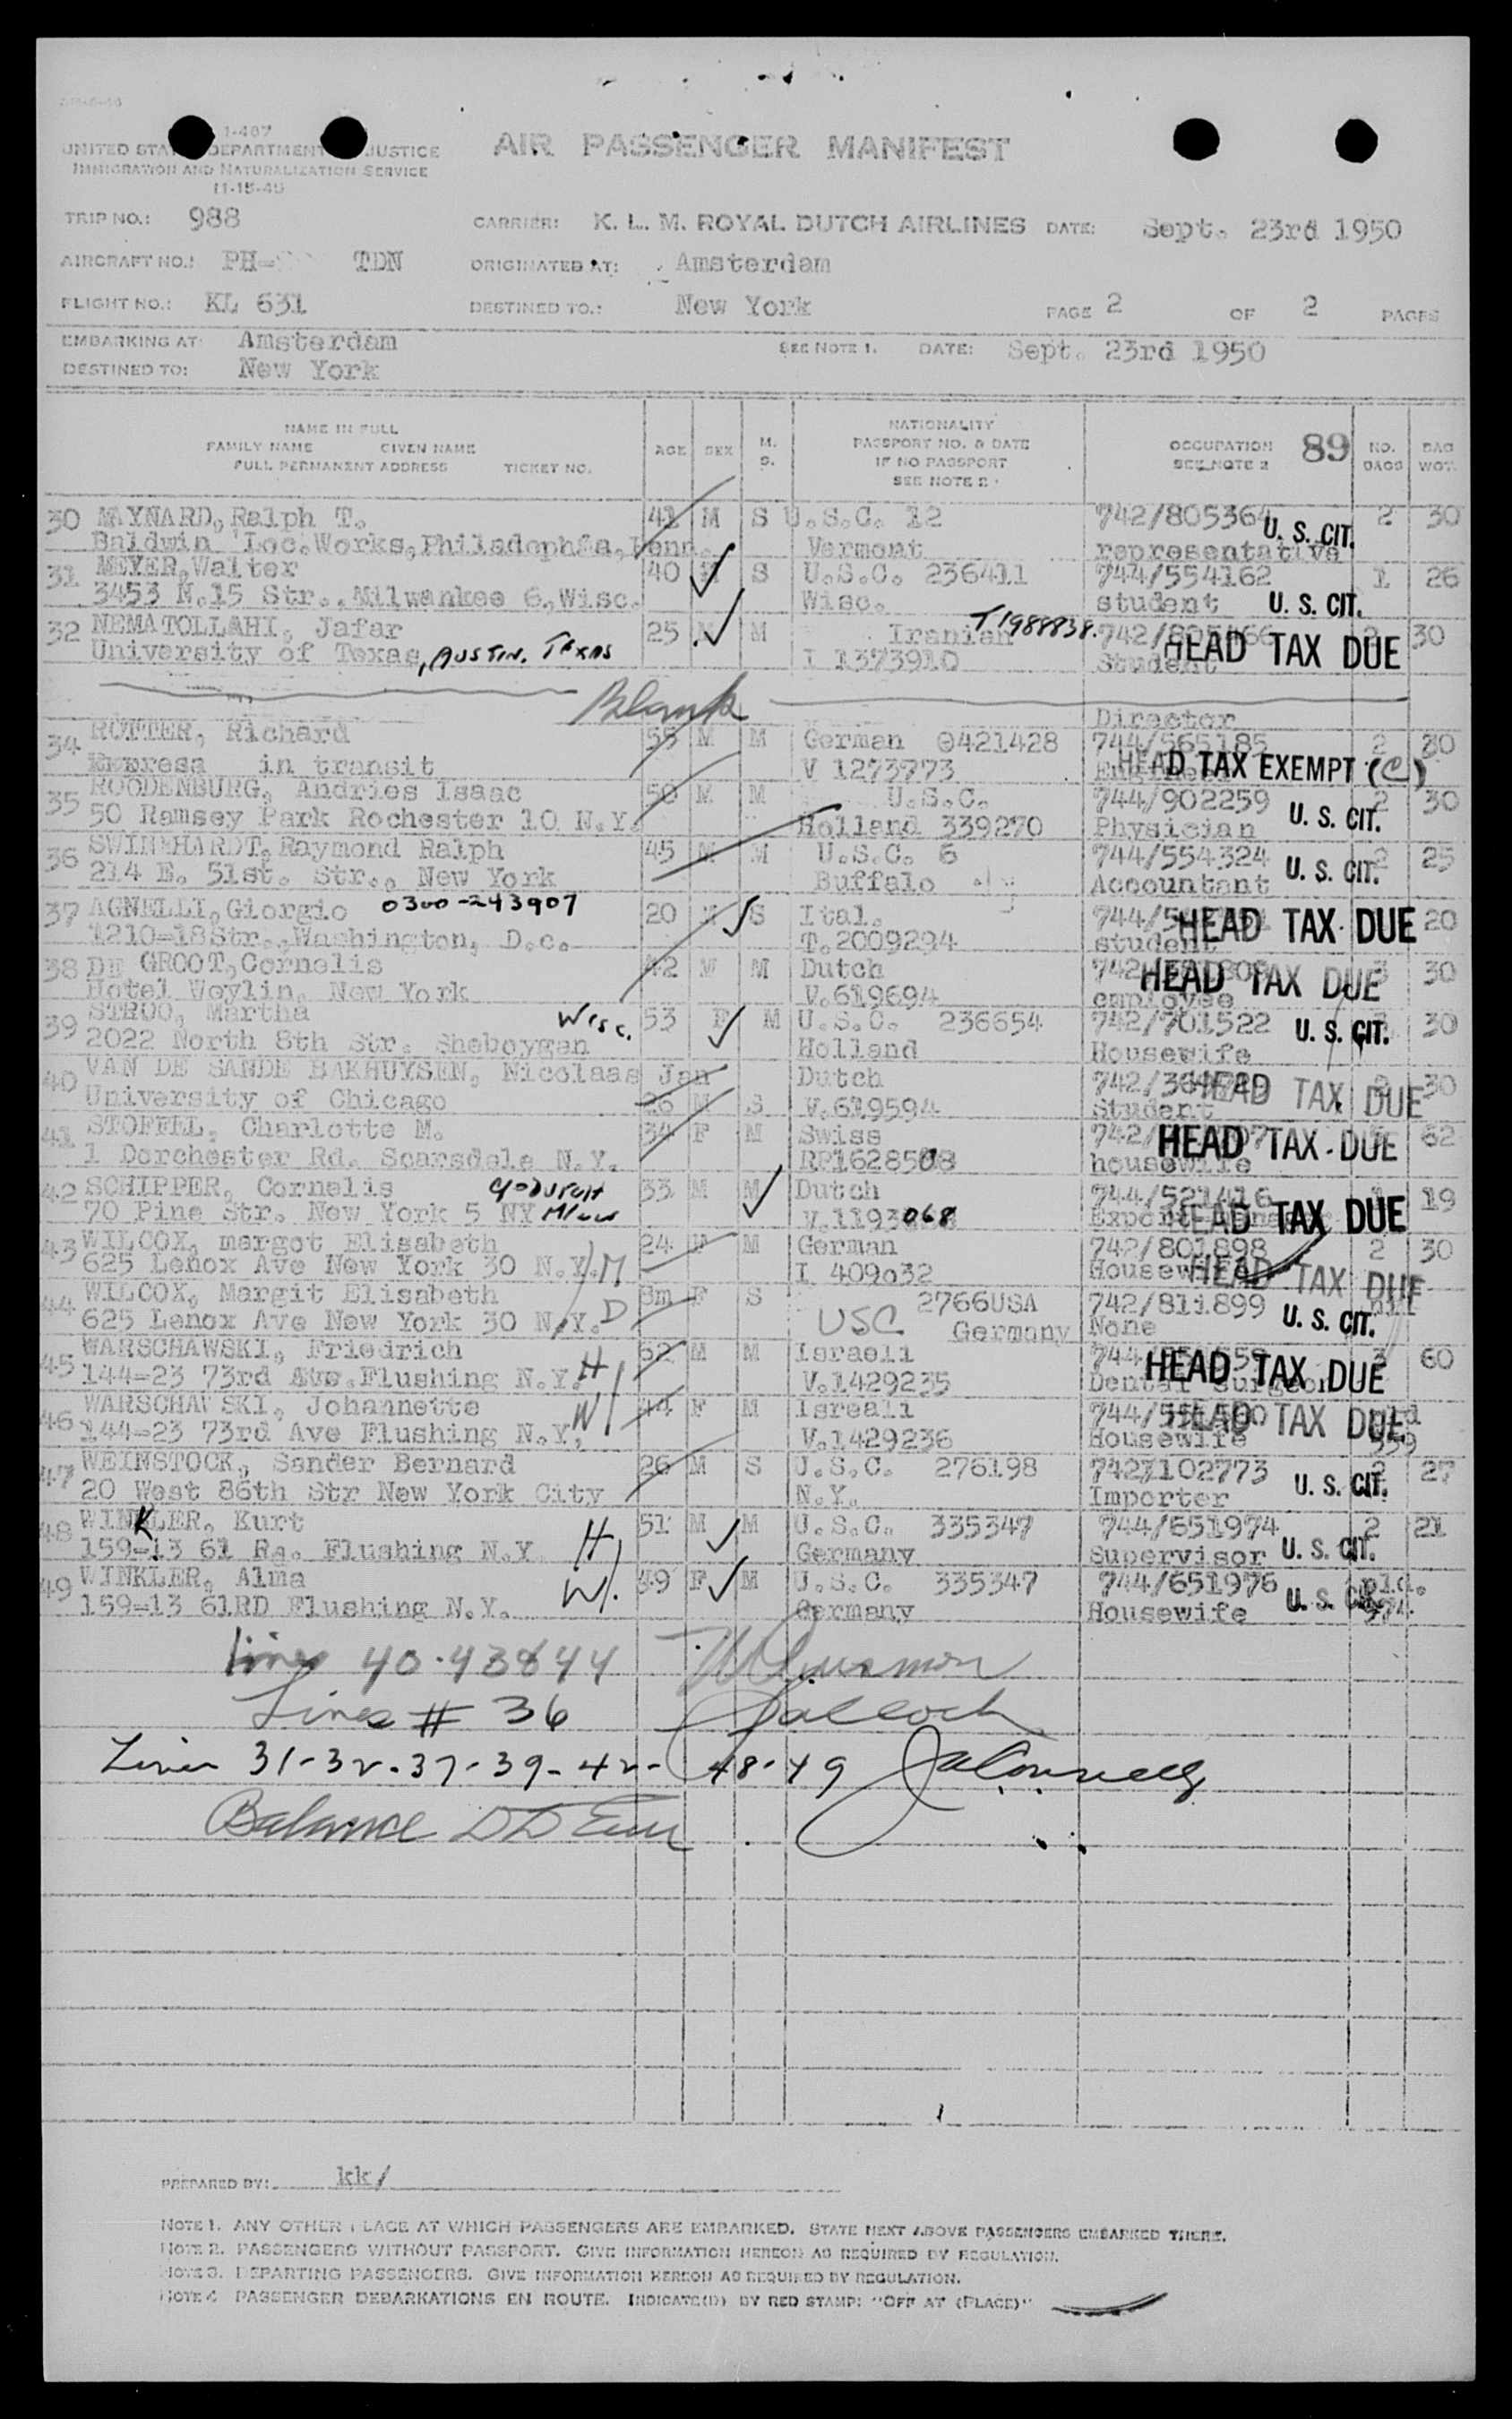 1-467
UNITED STA DEPARTMENT JUSTICE
IMMIGRATION AND NATURALIZATION SERVICE
11-15-45
AIR PASSENGER MANIFEST
TRIP NO.: 988 CARRIER: K. L. M. ROYAL DUTCH AIRLINES DATE: Sept. 23rd 1950
AIRCRAFT NO.: PH- TDN ORIGINATED AT: Amsterdam
FLIGHT NO.: KL 631 DESTINED TO.: New York PAGE 2 OF 2 PAGES
EMBARKING AT: Amsterdam SEE NOTE 1. DATE: Sept. 23rd 1950
DESTINED TO: New York
NAME IN FULL
FAMILY NAME GIVEN NAME
FULL PERMANENT ADDRESS TICKET NO.
AGE SEX M. S.
NATIONALITY
PASSPORT NO. & DATE
IF NO PASSPORT
SEE NOTE 2
OCCUPATION
SEE NOTE 2
89
NO. BAGS
BAG WGT.
30 MAYNARD, Ralph T. 41 M S U.S.C. 12 742/805364 U. S. CIT. 2 30
Baldwin Loc.Works,Philadephia, Penn. Vermont representative
31 MEYER,Walter 40 M S U.S.C. 236411 744/554162 1 26
3453 N.15 Str., Milwankee 6,Wisc. Wisc. student U. S. CIT.
32 NEMATOLLAHI, Jafar 25 M M Iranian T1988838. HEAD TAX DUE 30
University of Texas, AUSTIN. TEXAS I 1373910 Student
Blank
Director
34 ROTTER, Richard 55 M M German 0421428 744/565185 2 30
Express in transit V 1273773 HEAD TAX EXEMPT (C)
35 ROODENBURG, Andries Isaac 50 M M U.S.C. 744/902259 U. S. CIT. 2 30
50 Ramsey Park Rochester 10 N.Y. Holland 339270 Physician
36 SWINEHARDT, Raymond Ralph 45 M M U.S.C. 6 744/554324 U. S. CIT. 2 25
214 E. 51st. Str., New York Buffalo Accountant
37 AGNELLI,Giorgio 0300-243907 20 M S Ital. HEAD TAX DUE 20
1210-18Str.,Washington, D.c. T.2009294 student
38 DE GROOT,Cornelis 42 M M Dutch HEAD TAX DUE 3 30
Hotel Weylin, New York V.619694 employee
39 STRUO, Martha Wisc. 53 F M U.S.C. 236654 742/701522 U. S. CIT. 30
2022 North 8th Str. Sheboygan Holland Housewife
40 VAN DE SANDE BAKHUYSEN, Nicolaas Jan Dutch HEAD TAX DUE 30
University of Chicago 26 M S V.619594 Student
41 STOFFEL, Charlotte M. 34 F M Swiss HEAD TAX DUE 62
1 Dorchester Rd. Scarsdale N.Y. housewife
42 SCHIPPER, Cornelis 33 M M Dutch 744/521416 1 19
70 Pine Str. New York 5 NY V.1193068 HEAD TAX DUE
43 WILCOX, margot Elisabeth 24 F M German 742/801898 2 30
625 Lenox Ave New York 30 N.Y. M I 409032 Housewife HEAD TAX DUE
44 WILCOX, Margit Elisabeth 8m F S 2766USA 742/811899 U. S. CIT. nil
625 Lenox Ave New York 30 N.Y. D USC Germany None
45 WARSCHAWSKI, Friedrich 52 M M Israeli HEAD TAX DUE 3 60
144-23 73rd Ave.Flushing N.Y. H V.1429235 Dental Surgeon
46 WARSCHAWSKI, Johannette W 44 F M Isreali HEAD TAX DUE
144-23 73rd Ave Flushing N.Y, V.1429236 Housewife
47 WEINSTOCK, Sander Bernard 26 M S U.S.C. 276198 742/102773 2 27
20 West 86th Str New York City N.Y. Importer U. S. CIT.
48 WINKLER, Kurt 51 M M U.S.C. 335347 744/651974 2 21
159-13 61 Rd. Flushing N.Y H Germany Supervisor U. S. CIT.
49 WINKLER, Alma 39 F M U.S.C. 335347 744/651976 U. S. CIT. pld.
159-13 61RD Flushing N.Y. W. Germany Housewife
lines 40.43&44
Lines # 36
Lines 31-32-37-39-42- 48-49
Balance
PREPARED BY: kk/
NOTE 1. ANY OTHER PLACE AT WHICH PASSENGERS ARE EMBARKED. STATE NEXT ABOVE PASSENGERS EMBARKED THERE.
NOTE 2. PASSENGERS WITHOUT PASSPORT. GIVE INFORMATION HEREON AS REQUIRED BY REGULATION.
NOTE 3. DEPARTING PASSENGERS. GIVE INFORMATION HEREON AS REQUIRED BY REGULATION.
NOTE 4 PASSENGER DEBARKATIONS EN ROUTE. INDICATE(D) BY RED STAMP: "OFF AT (PLACE)"